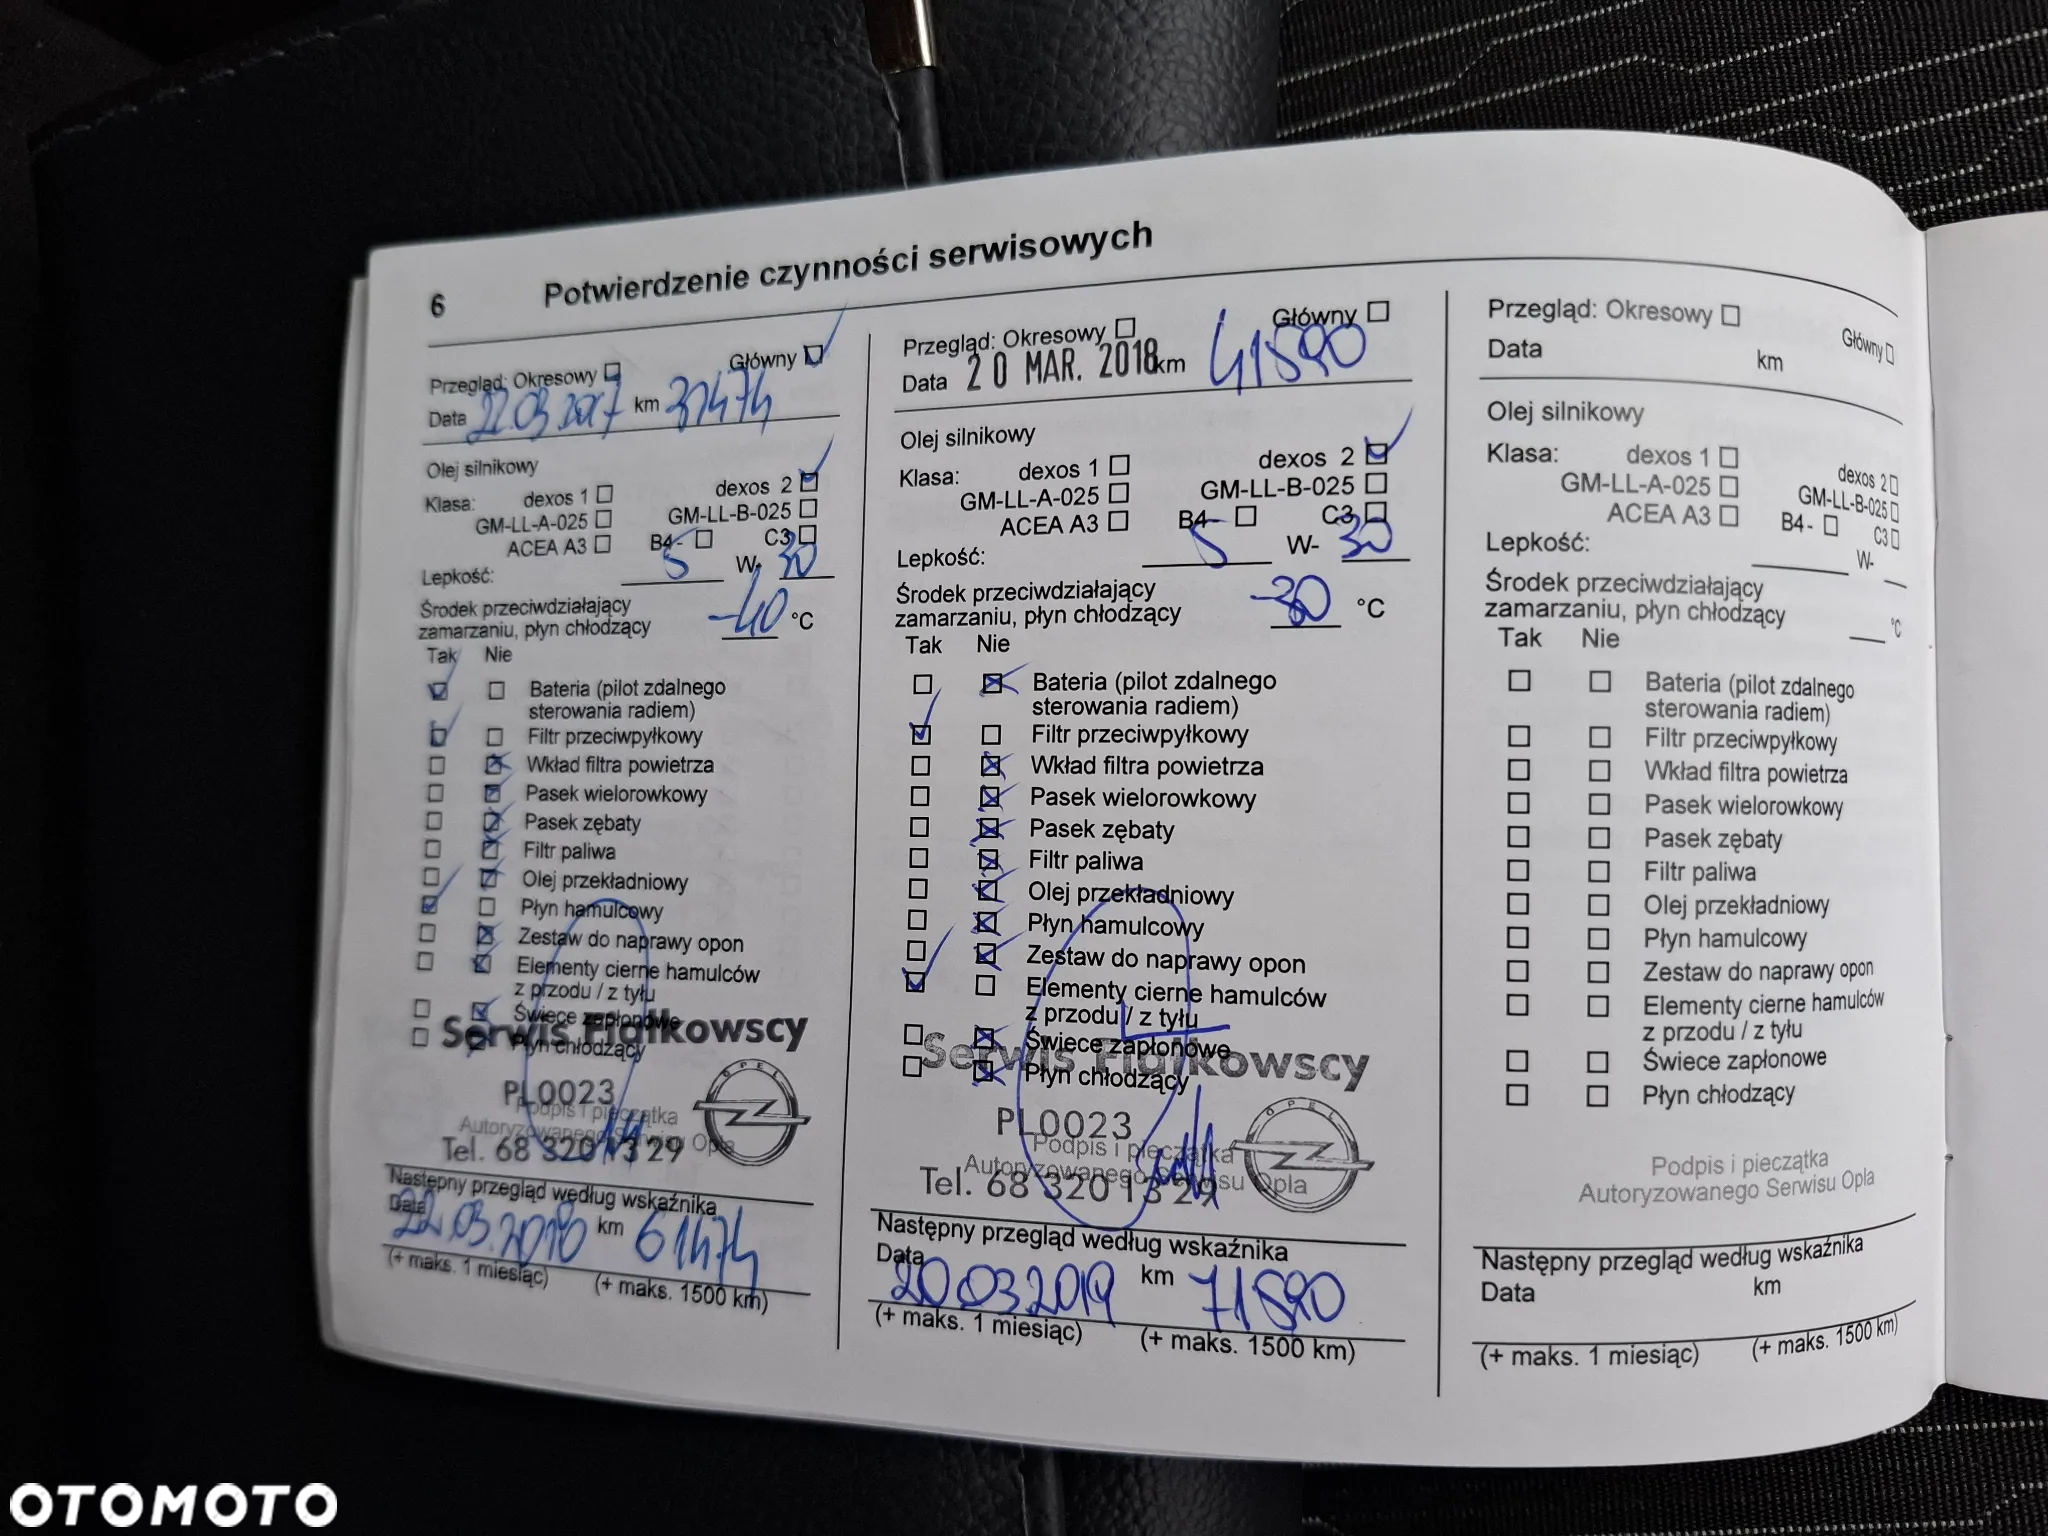 6 Potwierdzenie czynności serwisowych
Przegląd: Okresowy Główny
Data 22.03.2017 km 31474
Olej silnikowy
Klasa: dexos 1 dexos 2
GM-LL-A-025 GM-LL-B-025
ACEA A3 B4- C3
Lepkość: 5 W- 30
Środek przeciwdziałający
zamarzaniu, płyn chłodzący -40 °C
Tak Nie
Bateria (pilot zdalnego
sterowania radiem)
Filtr przeciwpyłkowy
Wkład filtra powietrza
Pasek wielorowkowy
Pasek zębaty
Filtr paliwa
Olej przekładniowy
Płyn hamulcowy
Zestaw do naprawy opon
Elementy cierne hamulców
z przodu / z tyłu
Świece zapłonowe
Płyn chłodzący
Serwis Fiałkowscy
PL0023
OPEL
Podpis i pieczątka
Autoryzowanego Serwisu Opla
Tel. 68 320 13 29
Następny przegląd według wskaźnika
Data 22.03.2018 km 61474
(+ maks. 1 miesiąc) (+ maks. 1500 km)
Przegląd: Okresowy Główny
Data 20 MAR. 2018 km 41590
Olej silnikowy
Klasa: dexos 1 dexos 2
GM-LL-A-025 GM-LL-B-025
ACEA A3 B4- C3
Lepkość: 5 W- 30
Środek przeciwdziałający
zamarzaniu, płyn chłodzący -30 °C
Tak Nie
Bateria (pilot zdalnego
sterowania radiem)
Filtr przeciwpyłkowy
Wkład filtra powietrza
Pasek wielorowkowy
Pasek zębaty
Filtr paliwa
Olej przekładniowy
Płyn hamulcowy
Zestaw do naprawy opon
Elementy cierne hamulców
z przodu / z tyłu
Świece zapłonowe
Płyn chłodzący
Serwis Fiałkowscy
PL0023
OPEL
Podpis i pieczątka
Autoryzowanego Serwisu Opla
Tel. 68 320 13 29
Następny przegląd według wskaźnika
Data 20.03.2019 km 71590
(+ maks. 1 miesiąc) (+ maks. 1500 km)
Przegląd: Okresowy Główny
Data km
Olej silnikowy
Klasa: dexos 1 dexos 2
GM-LL-A-025 GM-LL-B-025
ACEA A3 B4- C3
Lepkość: W-
Środek przeciwdziałający
zamarzaniu, płyn chłodzący °C
Tak Nie
Bateria (pilot zdalnego
sterowania radiem)
Filtr przeciwpyłkowy
Wkład filtra powietrza
Pasek wielorowkowy
Pasek zębaty
Filtr paliwa
Olej przekładniowy
Płyn hamulcowy
Zestaw do naprawy opon
Elementy cierne hamulców
z przodu / z tyłu
Świece zapłonowe
Płyn chłodzący
Podpis i pieczątka
Autoryzowanego Serwisu Opla
Następny przegląd według wskaźnika
Data km
(+ maks. 1 miesiąc) (+ maks. 1500 km)
OTOMOTO